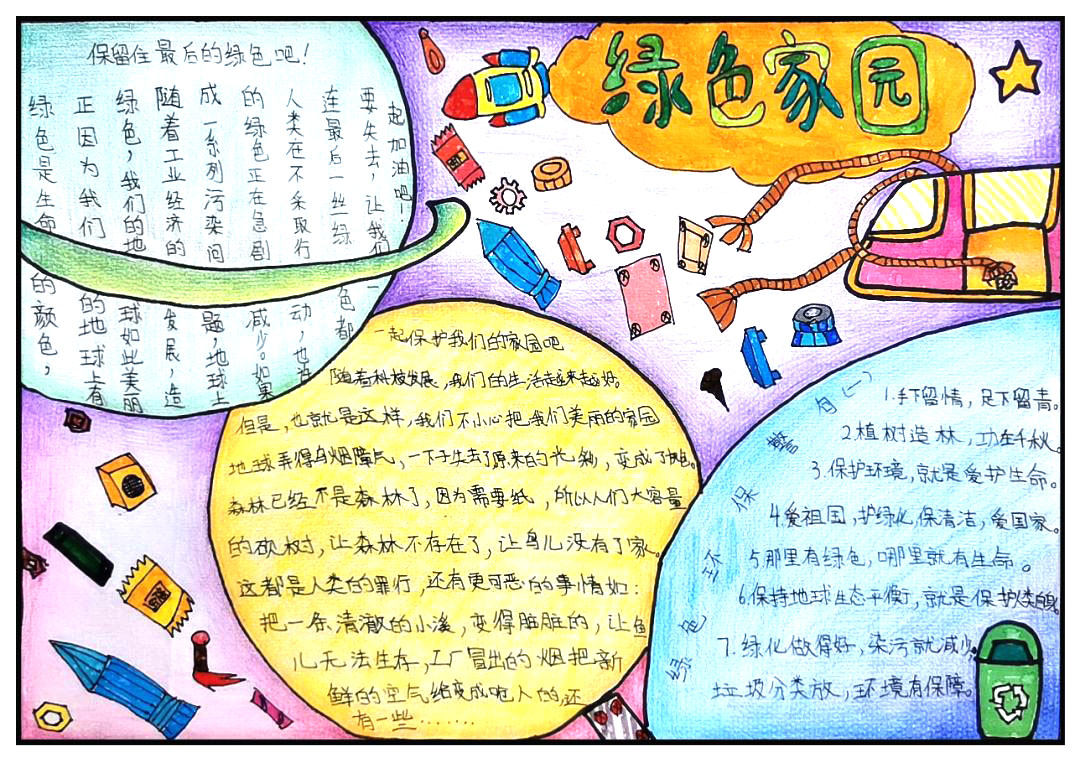 绿色家园
保留住最后的绿色吧!
绿色是生命的颜色,
正因为我们的地球上有
绿色,我们的地球如此美丽
随着工业经济的发展,造
成一系列污染问题,地球上
的绿色正在急剧减少。如果
人类在不采取行动,也
连最后一丝绿色都
要失去,让我们一
起加油吧!
一起保护我们的家园吧
随着科技发展,我们的生活越来越好。
但是,也就是这样,我们不小心把我们美丽的家园
地球弄得乌烟障气,一下子失去了原来的光彩,变成了
森林已经不是森林了,因为需要纸,所以人们大容量
的砍树,让森林不存在了,让鸟儿没有了家。
这都是人类的罪行,还有更可恶的事情如:
把一条清澈的小溪,变得脏脏的,让鱼
儿无法生存,工厂冒出的烟把新
鲜的空气给变成呛人的,还
有一些........
绿色环保警句(一)
1.手下留情,足下留青。
2.植树造林,功在千秋。
3.保护环境,就是爱护生命。
4.爱祖国,护绿化,保清洁,爱国家。
5.那里有绿色,哪里就有生命。
6.保持地球生态平衡,就是保护人类自身
7.绿化做得好,染污就减少。
垃圾分类放,环境有保障。